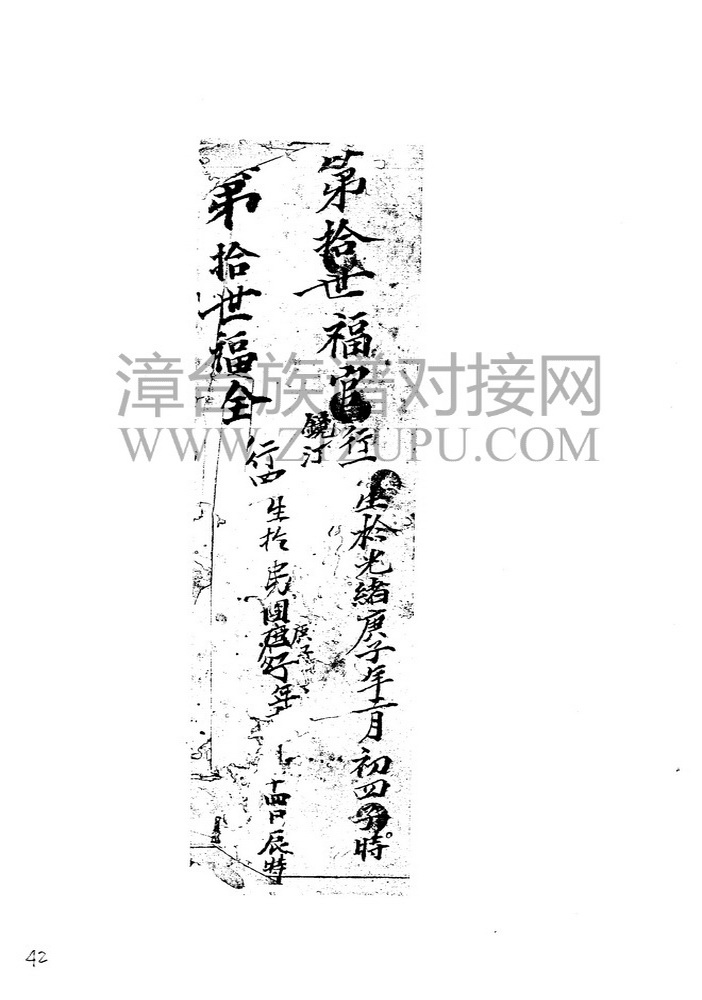 第拾世福官行一生於光緒庚子年二月初四子時
鏡汀
第拾世福全行四生於民国
庚子
年
十四日辰時
漳台族谱对接网
WWW.ZTZUPU.COM
42